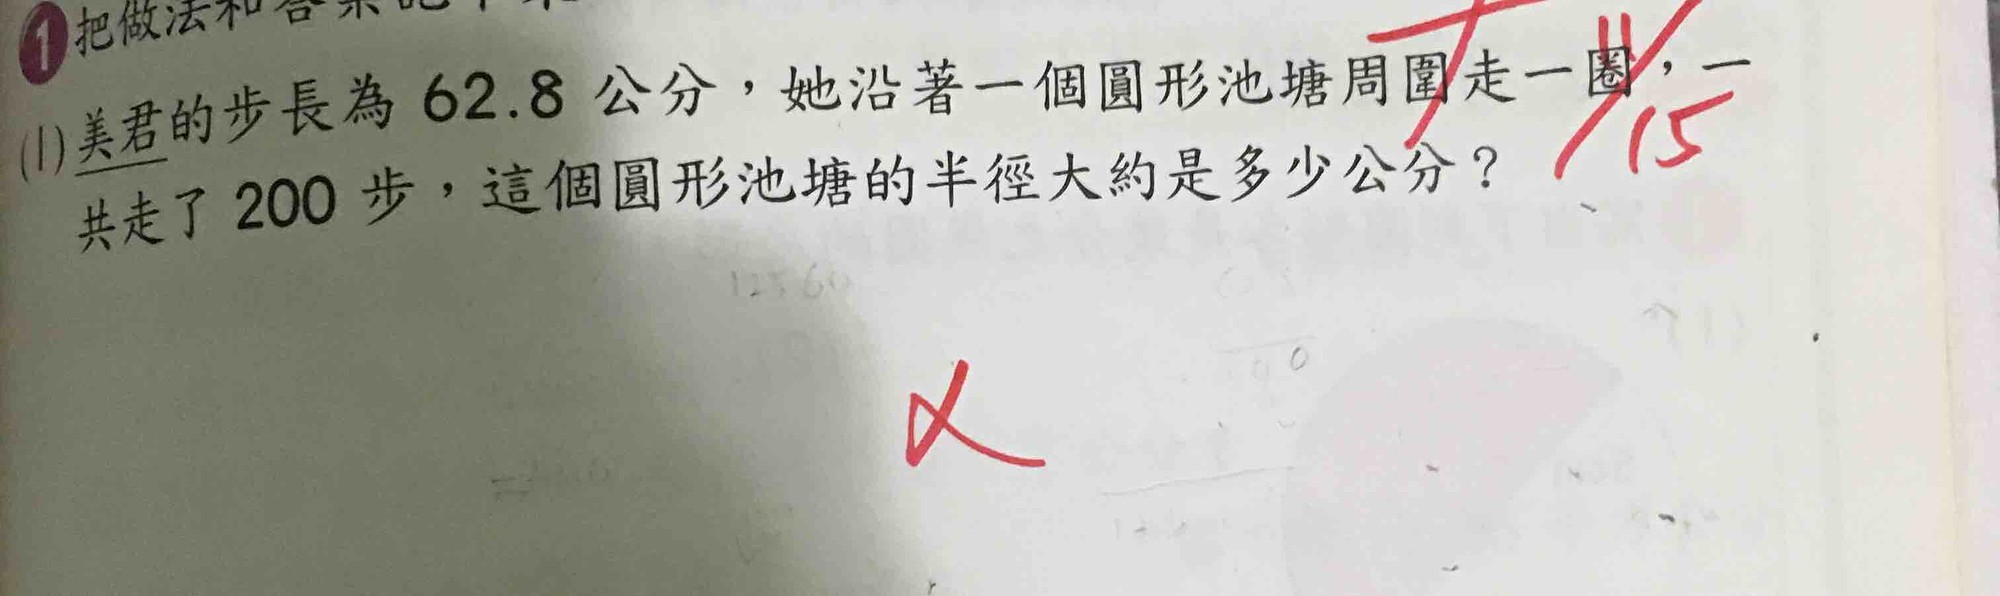 1 把做法和答案記下來
(1)美君的步長為 62.8 公分，她沿著一個圓形池塘周圍走一圈，一
共走了 200 步，這個圓形池塘的半徑大約是多少公分？
11/15
12560